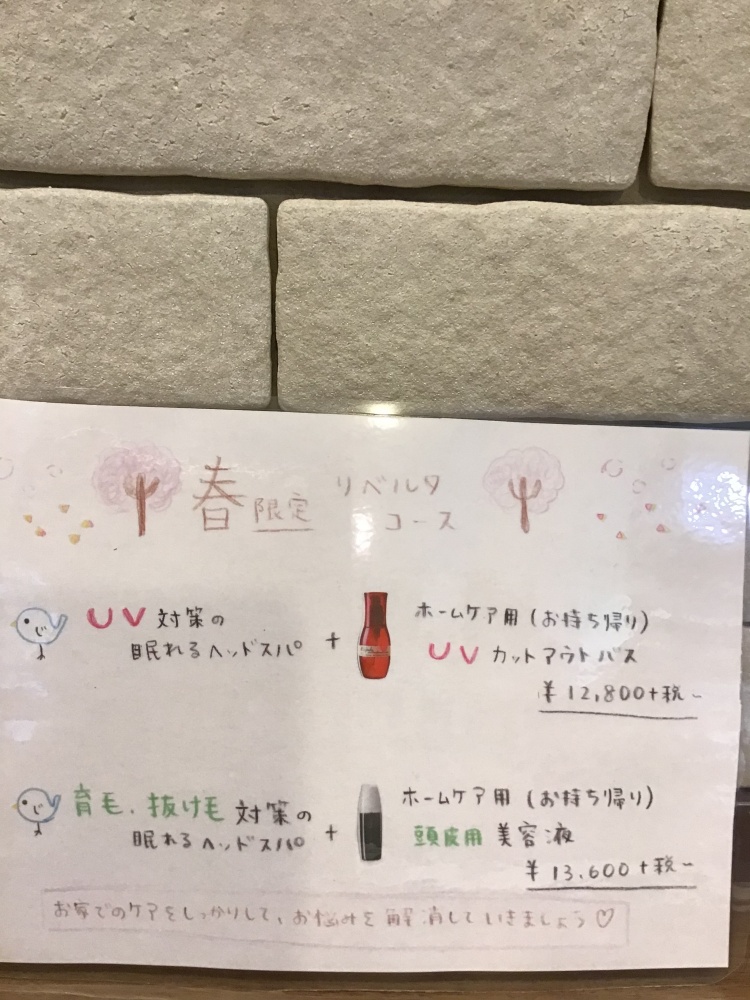 春限定 リベルタ
コース
UV対策の
眠れるヘッドスパ
+
ホームケア用(お持ち帰り)
UVカットアウトバス
¥12,800+税~
育毛.抜け毛対策の
眠れるヘッドスパ
+
ホームケア用(お持ち帰り)
頭皮用美容液
¥13,600+税~
お家でのケアをしっかりして、お悩みを解消していきましょう♡